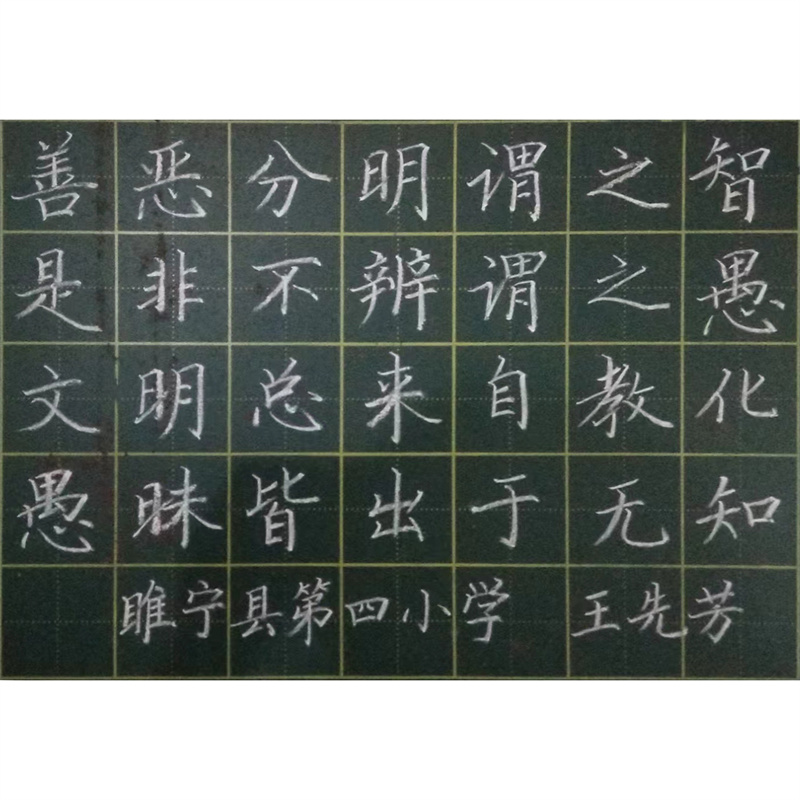 善恶分明谓之智
是非不辨谓之愚
文明总来自教化
愚昧皆出于无知
睢宁县第四小学 王先芳